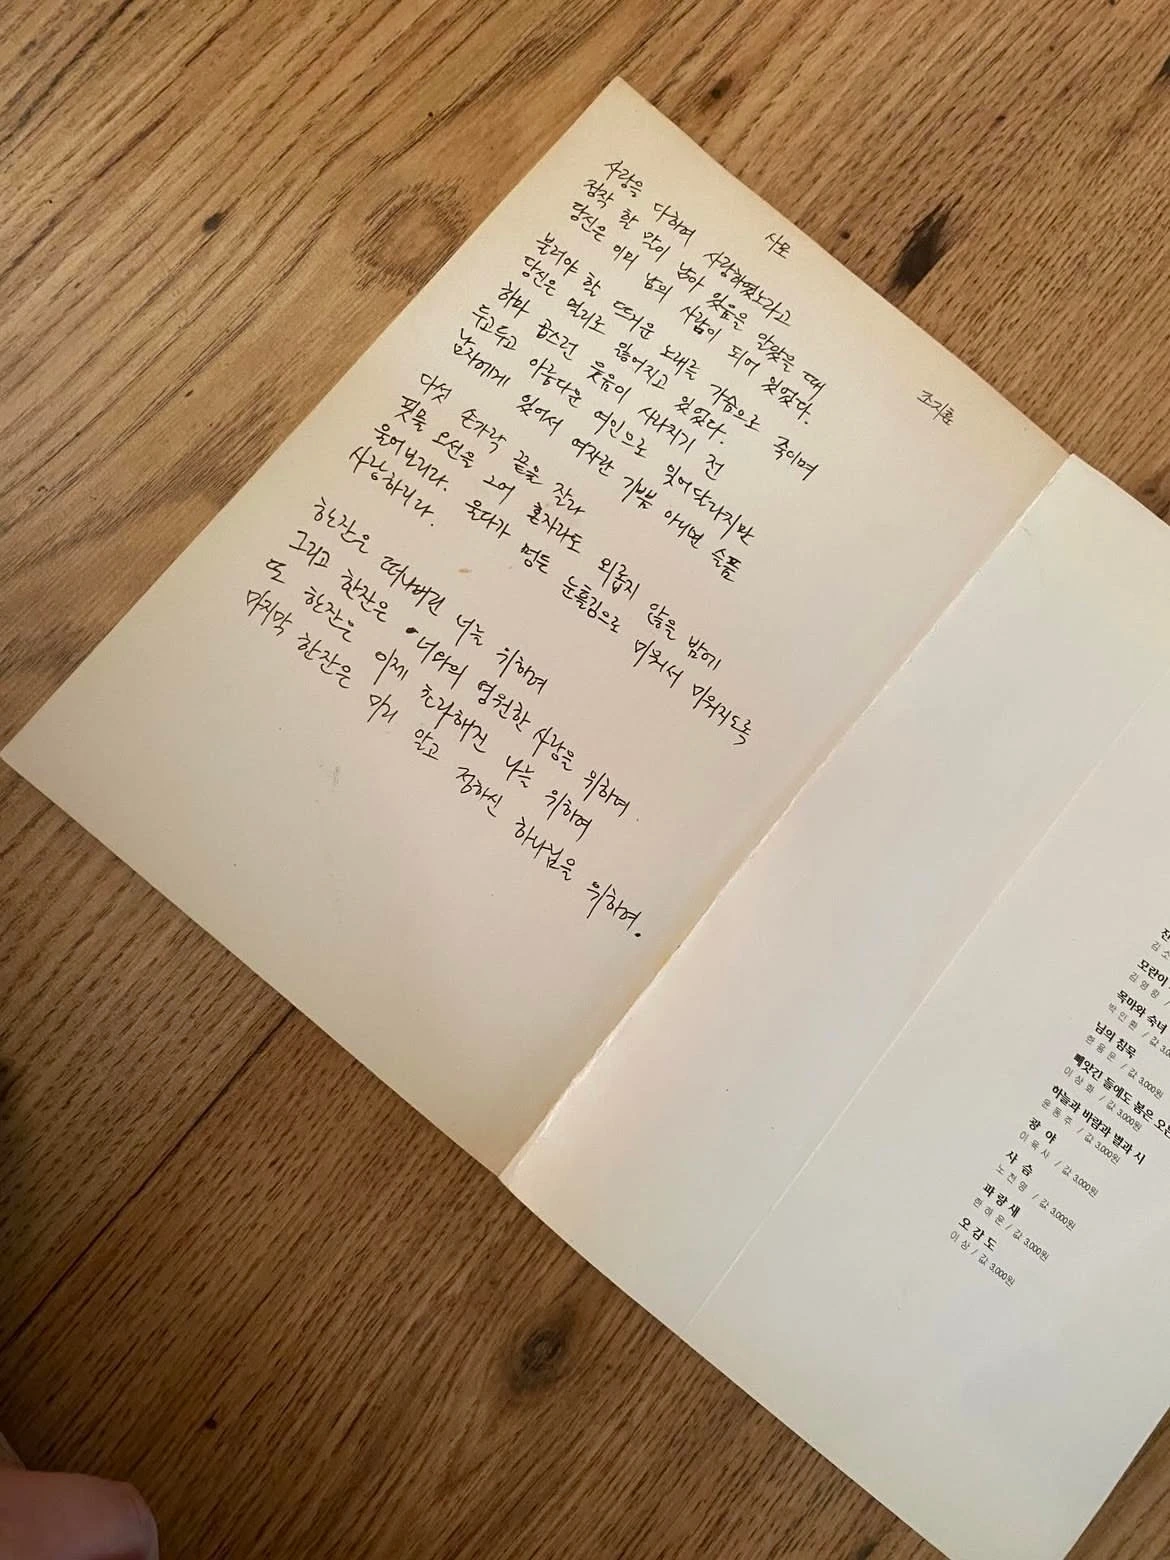 사모
조지훈
사랑을 다하여 사랑하였노라고
정작 할 말이 남아 있음을 알았을 때
당신은 이미 남의 사람이 되어 있었다.
불러야 할 뜨거운 노래를 가슴으로 죽이며
당신은 멀리로 잃어지고 있었다.
하마 곱스런 웃음이 사라지기 전
두고두고 아름다운 여인으로 잊어 달라지만
남자에게 있어서 여자란 기쁨 아니면 슬픔
다섯 손가락 끝을 잘라
핏물 오선을 그어 혼자라도 외롭지 않을 밤에
울어보리라. 울다가 멍든 눈흘김으로 미워서 미워지도록
사랑하리라.
한잔은 떠나버린 너를 위하여
그리고 한잔은 너와의 영원한 사랑을 위하여.
또 한잔은 이제 초라해진 나를 위하여
마지막 한잔은 미리 알고 정하신 하나님을 위하여.
김 소
모란이
김 영 랑 /
목마와 숙녀
박 인 환 / 값 3,00
님의 침묵
한 용 운 / 값 3,000원
빼앗긴 들에도 봄은
이 상 화 / 값 3,000원
하늘과 바람과 별과 시
윤 동 주 / 값 3,000원
광 야
이 육 사 / 값 3,000원
사 슴
노 천 명 / 값 3,000원
파 랑 새
한 하 운 / 값 3,000원
오 감 도
이 상 / 값 3,000원